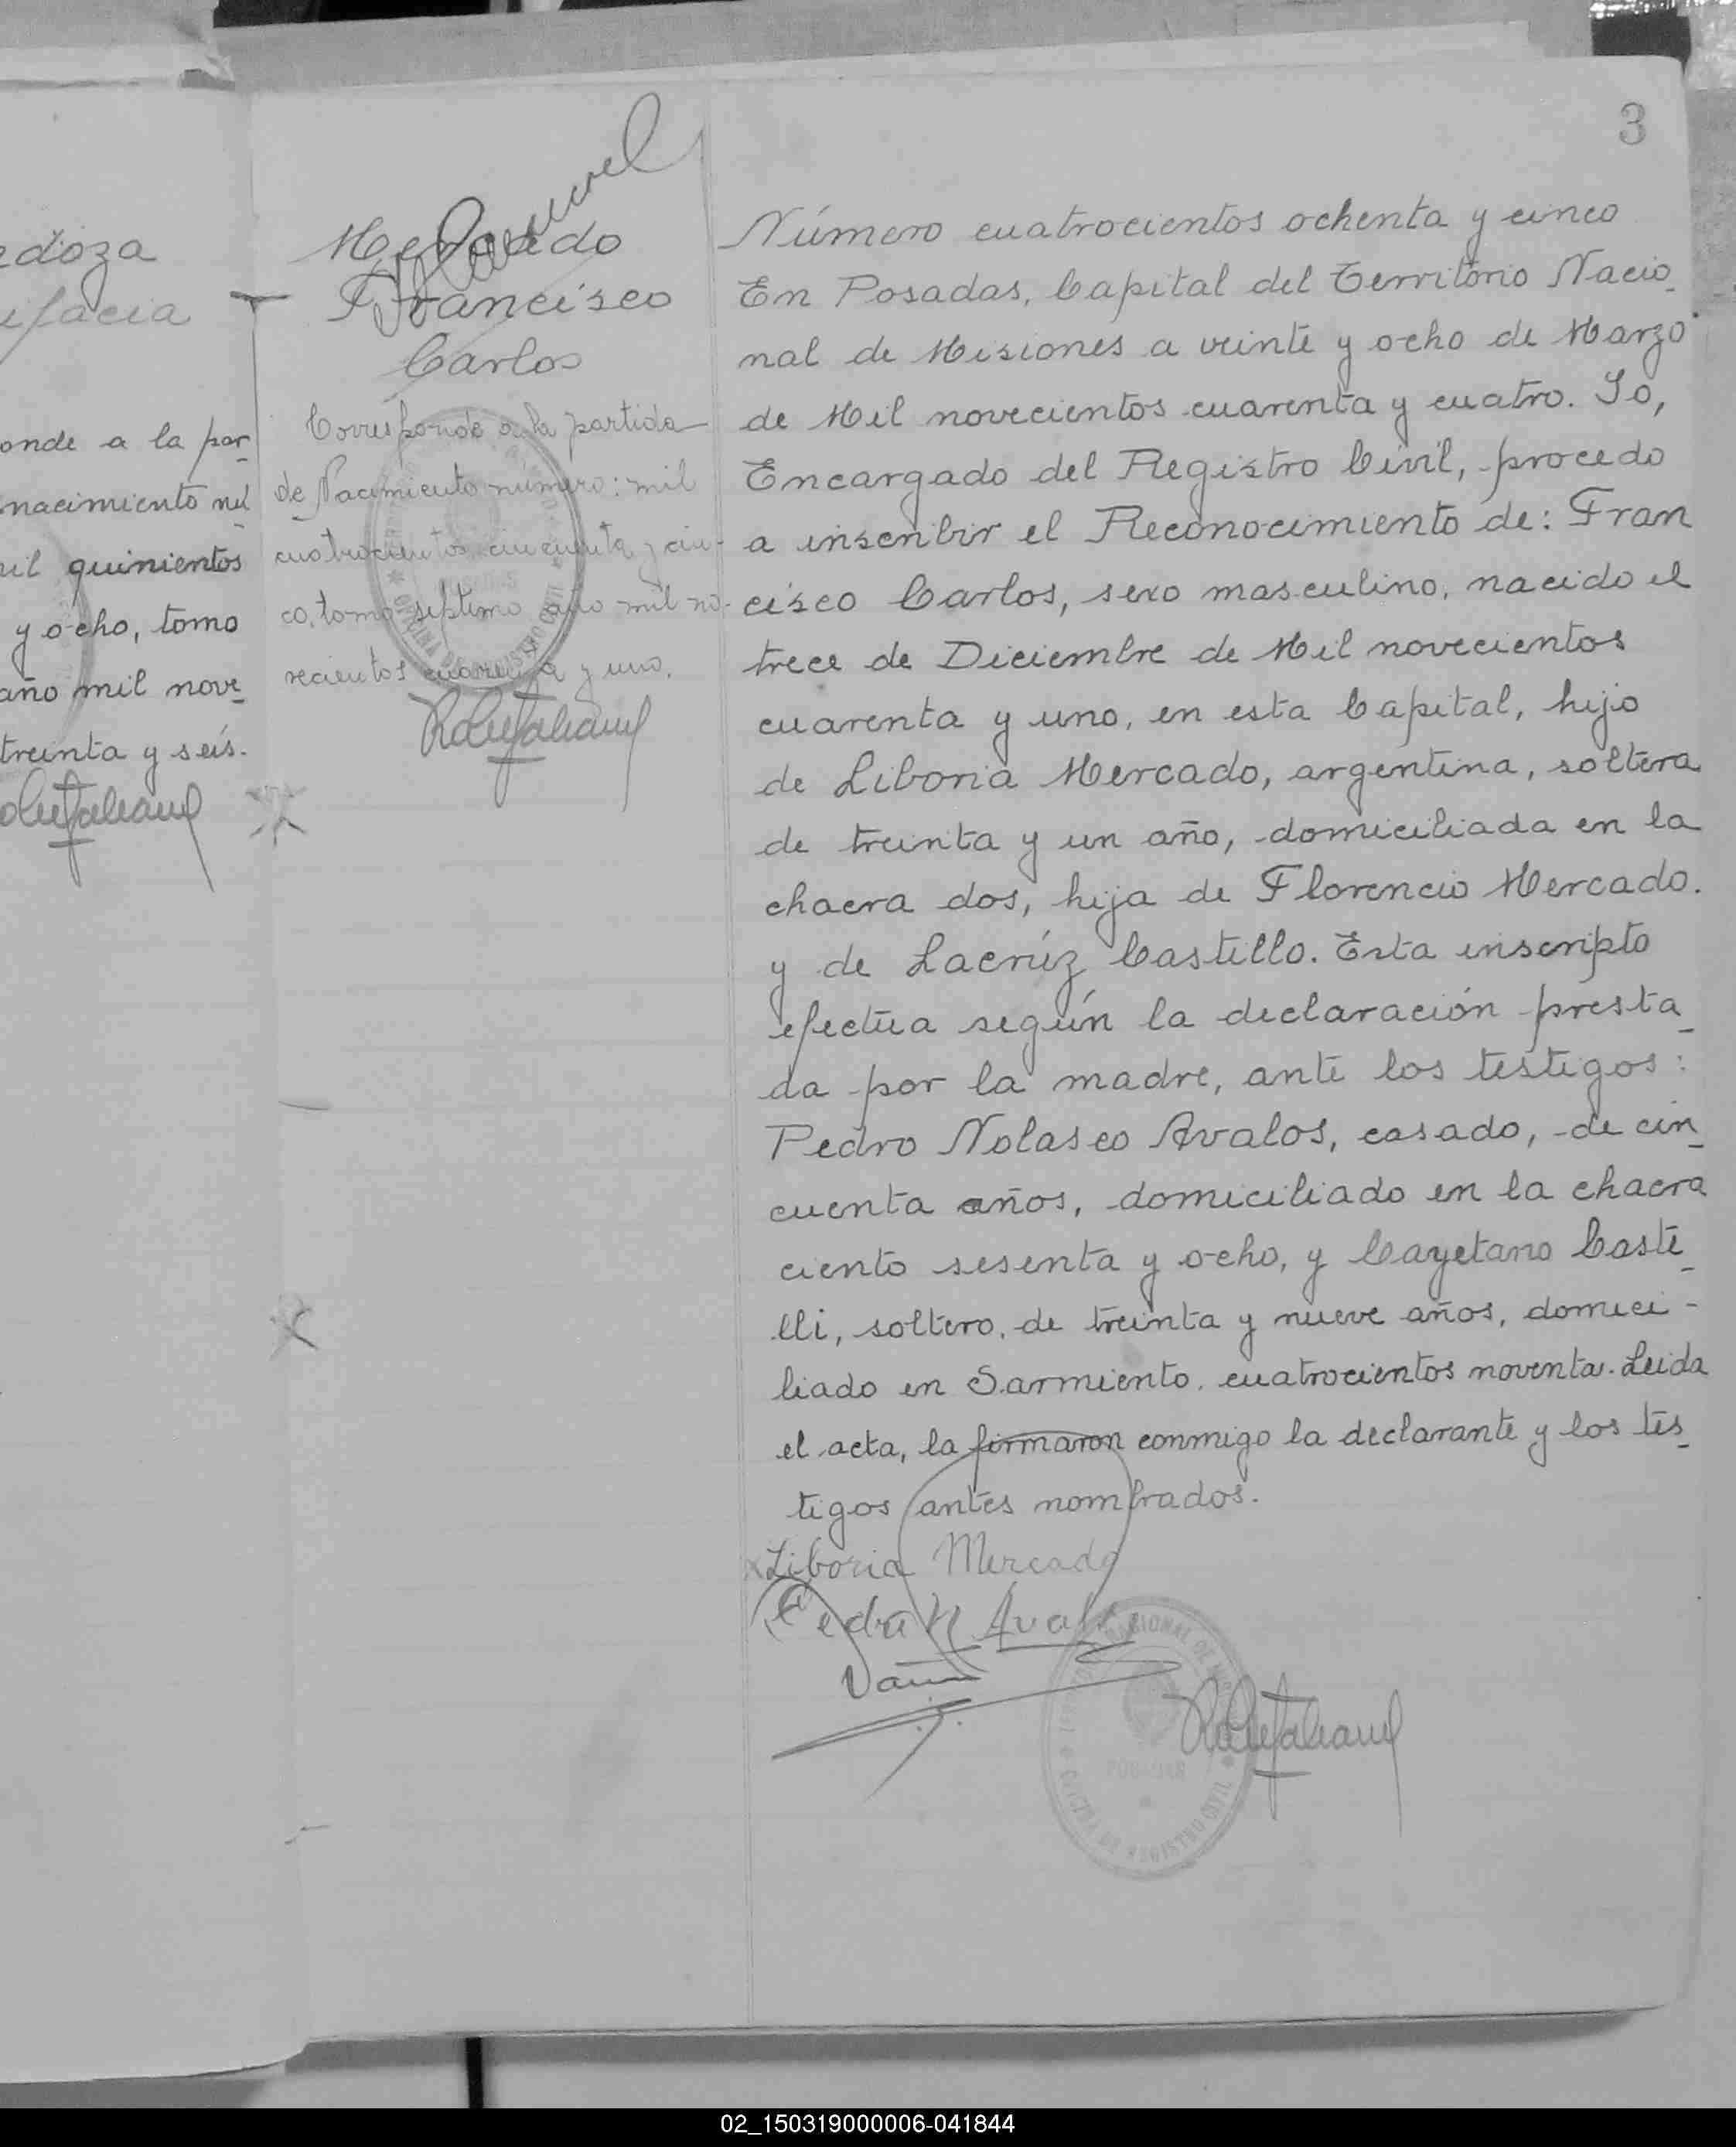 3
edoza
ifacia
onde a la par
nacimiento nú
mil quinientos
y ocho, tomo
año mil nove
treinta y seis.
Mercado
Francisco
Carlos
Corresponde a la partida
de Nacimiento número: mil
cuatrocientos cincuenta y cin-
co, tomo septimo año mil no-
vecientos cuarenta y uno.
Número cuatrocientos ochenta y cinco
En Posadas, Capital del Territorio Nacio
nal de Misiones a veinte y ocho de Marzo
de Mil novecientos cuarenta y cuatro. Yo,
Encargado del Registro Civil, procedo
a inscribir el Reconocimiento de: Fran
cisco Carlos, sexo masculino, nacido el
trece de Diciembre de Mil novecientos
cuarenta y uno, en esta Capital, hijo
de Liboria Mercado, argentina, soltera
de treinta y un año, domiciliada en la
chacra dos, hija de Florencio Mercado.
y de Lacrúz Castillo. Esta inscripto
efectúa según la declaración presta
da por la madre, ante los testigos:
Pedro Nolasco Avalos, casado, de cin
cuenta años, domiciliado en la chacra
ciento sesenta y ocho, y Cayetano Caste
lli, soltero, de treinta y nueve años, domici-
liado en Sarmiento cuatrocientos noventa. Leida
el acta, la firmaron conmigo la declarante y los tes
tigos antes nombrados.
Liboria Mercado
Pedro N Avalos
OFICINA DE REGISTRO CIVIL
POSADAS
02_150319000006-041844